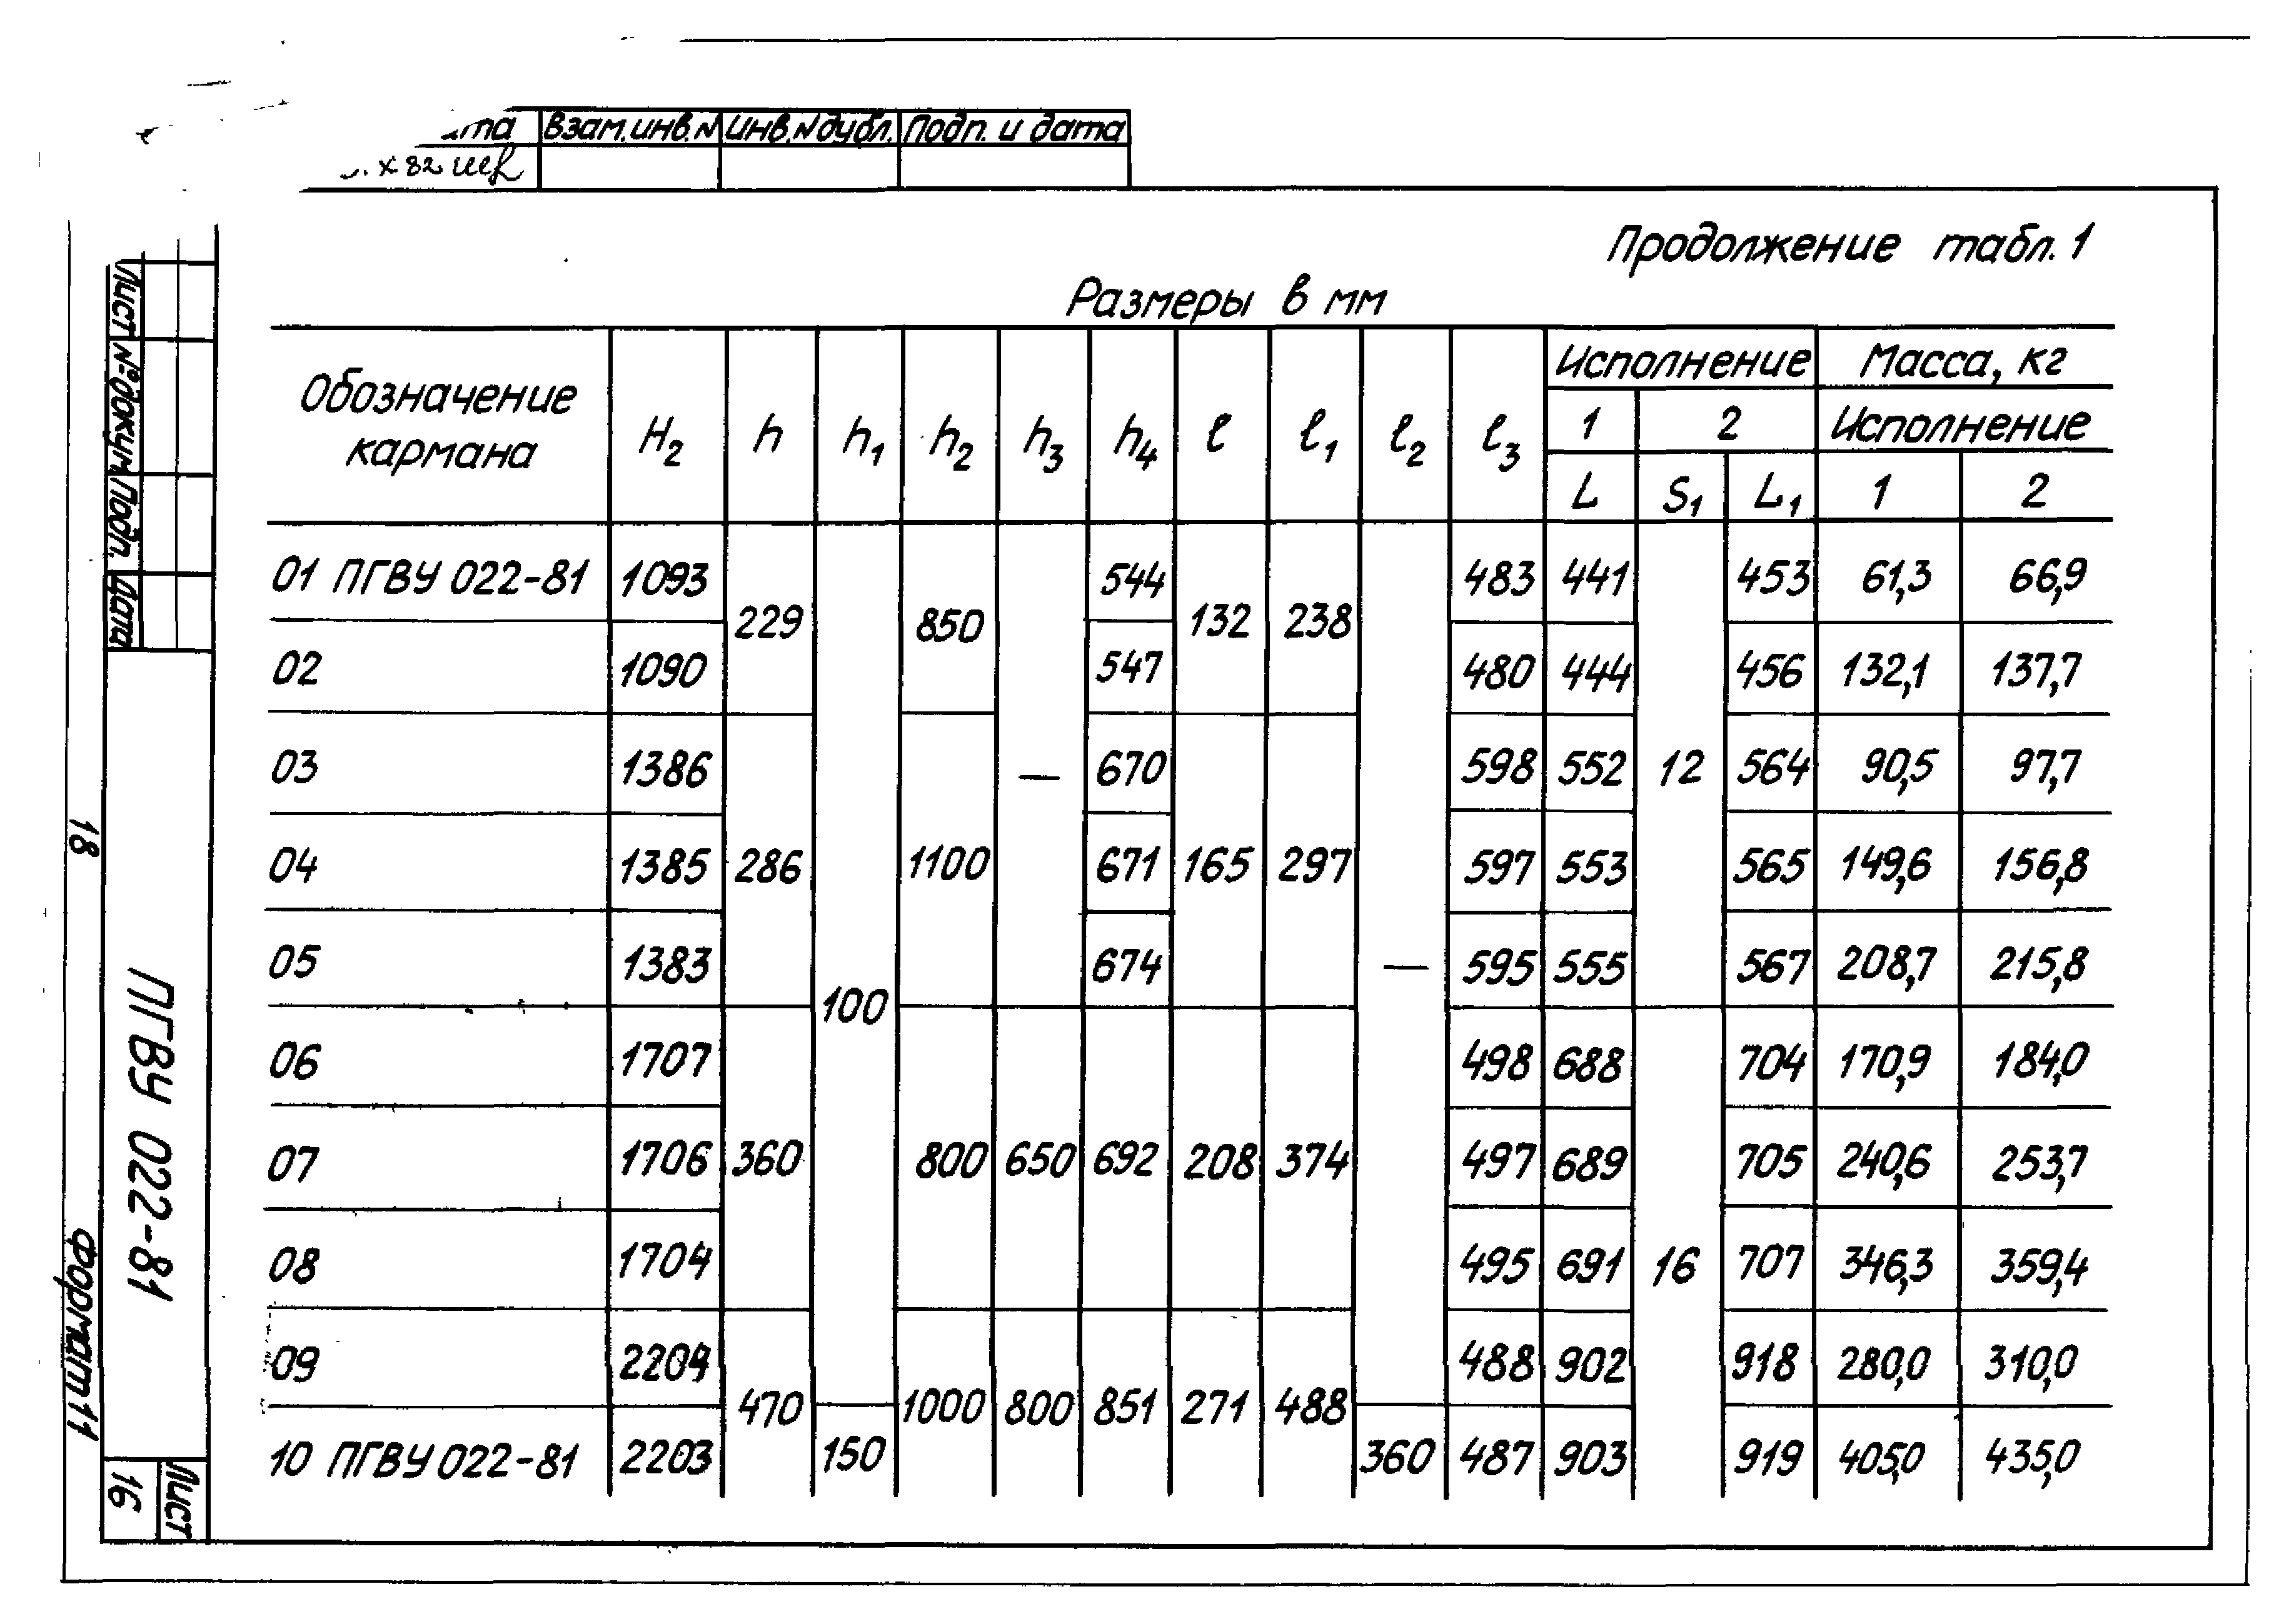 Взам.инв.N Инв.N дубл. Подп. и дата
Продолжение табл. 1
Размеры в мм
Обозначение кармана H2 h h1 h2 h3 h4 ℓ ℓ1 ℓ2 ℓ3 Исполнение Масса, кг
1 2 Исполнение
L S1 L1 1 2
01 ПГВУ 022-81 1093 229 850 544 132 238 483 441 453 61,3 66,9
02 1090 547 480 444 456 132,1 137,7
03 1386 — 670 598 552 12 564 90,5 97,7
04 1385 286 1100 671 165 297 597 553 565 149,6 156,8
05 1383 100 674 — 595 555 567 208,7 215,8
06 1707 498 688 704 170,9 184,0
07 1706 360 800 650 692 208 374 497 689 705 240,6 253,7
08 1704 495 691 16 707 346,3 359,4
09 2204 470 1000 800 851 271 488 488 902 918 280,0 310,0
10 ПГВУ 022-81 2203 150 360 487 903 919 405,0 435,0
Лист №докум. Подп. Дата
ПГВУ 022-81
Лист
16
18
Формат 11